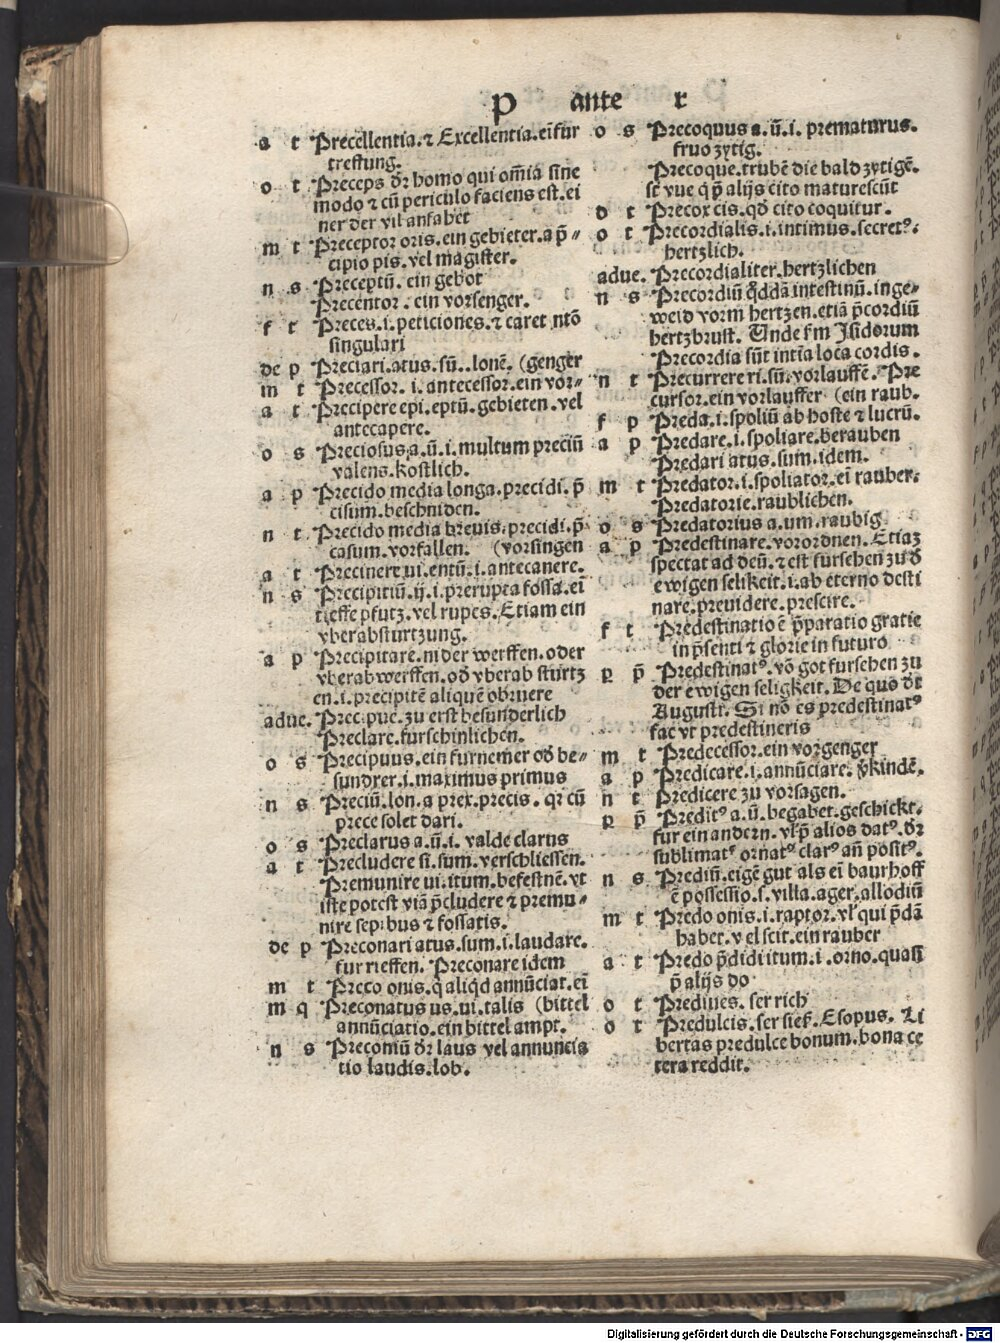 P ante r
a t Precellentia.⁊ Excellentia.eĩ fur
treffung.
o t Preceps dr̃ homo qui om̃ia sine
modo ⁊ cũ periculo faciens est.ei
ner der vil anfabet
m t Preceptor oris.ein gebieter.a p̃-
cipio pis.vel magister.
n s Preceptũ.ein gebot
Precentor.ein vorsenger.
f t Preces.i.peticiones.⁊ caret ntõ
singulari
de p Preciari.atus.sũ..lonẽ. (genger
m t Precessor.i.antecessor.ein vor-
a t Precipere epi.eptũ.gebieten.vel
antecapere.
o s Preciosus.a.ũ.i.multum preciũ
valens.kostlich.
a p Precido media longa.precidi.p̃
cisum.beschniden.
n t Precido media breuis.precidi.p̃
casum.vorfallen. (vorsingen
a t Precinere ui.entũ.i.antecanere.
n s Precipitiũ.ij.i.prerupta fossa.eĩ
tieffe pfutz.vel rupes.Etiam ein
vberabsturtzung.
a p Precipitare.nider werffen.oder
vberabwerffen.od' vberab sturtz
en.i.precipitẽ aliquẽ obruere
adue. Precipue.zu erst besunderlich
Preclare.furschinlichen.
o s Precipuus.ein furnemer od' be-
sundrer.i.maximus primus
n s Preciũ.lon.a prex.precis.qr cũ
prece solet dari.
o s Preclarus a.ũ.i.valde clarus
a t Precludere si.sum.verschliessen.
Premunire ui.itum.befestnẽ.vt
iste potest viã p̃cludere ⁊ premu-
nire sepibus ⁊ fossatis.
de p Preconari atus.sum.i.laudare.
fur rieffen. Preconare idem
m t Preco onis.q̃ aliqd annũciat.eĩ
m q Preconatus us.ui.talis (bittel
annũciatio.ein bittel ampt.
n s Preconiũ dr̃ laus vel annuncia
tio laudis.lob.
o s Precoquus a.ũ.i.prematurus.
fruo zytig.
Precoque.trubẽ die bald zytigẽ.
sc̃ vue q̃ p̃ alijs cito maturescũt
d t Precox cis.qd' cito coquitur.
o t Precordialis.i.intimus.secretꝰ.
hertzlich.
adue. Precordialiter.hertzlichen
n s Precordiũ q̃ddã intestinũ.inge-
weid vorm hertzen.etiã p̃cordiũ
hertzbrust. Unde s'm Isidorum
Precordia sũt intĩa loca cordis.
n t Precurrere ri.sũ.vorlauffẽ. Pre
cursor.ein vorlauffer (ein raub.
f p Preda.i.spoliũ ab hoste ⁊ lucrũ.
a p Predare.i.spoliare.berauben
Predari atus.sum.idem.
m t Predator.i.spoliator.eĩ rauber.
Predatorie.raublichen.
o s Predatorius a.um.raubig
a p Predestinare.vorordnen.Etiaz
spectat ad deũ.⁊ est fursehen zu d'
ewigen selikeit.i.ab eterno desti
nare.preuidere.prescire.
f t Predestinatio ẽ p̃paratio gratie
in p̃senti ⁊ glorie in futuro
ꝑ p̃ Predestinatꝰ.võ got fursehen zu
der ewigen seligkeit.De quo dt
August. Si nõ es predestinatꝰ
fac vt predestineris
m t Predecessor.ein vorgenger
a p Predicare.i.annũciare.v'kindẽ.
n t Predicere zu vorsagen.
ꝑ p̃ Preditꝰ a.ũ.begabet.geschickt.
fur ein andern.vl' p̃ alios datꝰ.dr̃
sublimatꝰ ornatꝰ clarꝰ añ positꝰ.
n s Prediũ.eigẽ gut als eĩ baurhoff
ẽ possessio.s.villa.ager.allodiũ
m t Predo onis.i.raptor.vl' qui p̃dã
habet.vel scit.ein rauber
a t Predo p̃didi itum.i.orno.quasi
p̃ alijs do
o t Prediues.ser rich
o t Predulcis.ser sieß.Esopus. Li
bertas predulce bonum.bona ce
tera reddit.
Digitalisierung gefördert durch die Deutsche Forschungsgemeinschaft - DFG